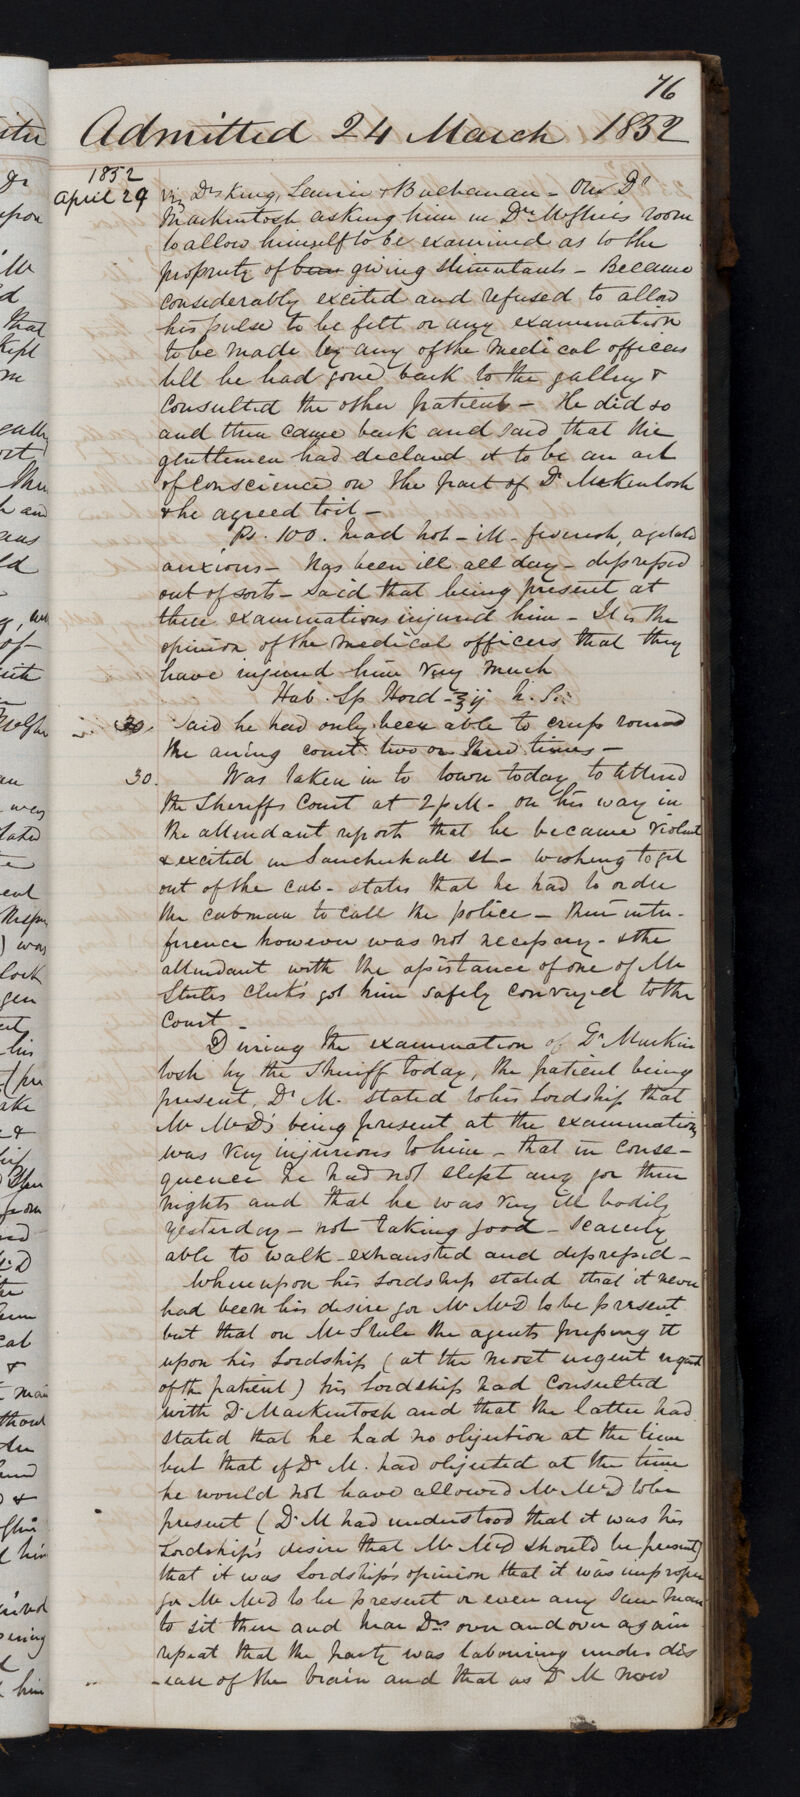 76
Admitted 24 March 1852
1852
April 29 viz Drs King, Laurie & Buchanan - On Dr
Mackintosh asking him in Dr McGhie's room
to allow himself to be examined as to the
propriety of been giving stimulants - Became
considerably excited and refused to allow
his pulse to be felt or any examination
to be made by any of the medical officers
till he had gone back to the gallery &
consulted the other patients - He did so
and then came back and said that the
gentlemen had declared it to be an act
of conscience on the part of Dr McKintosh
& he agreed to it -
Ps. 100. Head hot - ill - feverish, agitated
anxious - Has been ill all day - depressed
out of sorts - said that being present at
these examinations injured him - It is the
opinion of the medical officers that they
have injured him very much
Hab. Sp Hord - ʒij h. s.
30. Said he had only been able to creep round
the airing court two or three times -
30. Was taken in to town today to attend
the Sheriffs Court at 2 p M - on his way in
the attendant reports that he became violent
& excited in Sauchiehall St - wishing to get
out of the cab - states that he had to order
the cabman to call the police - Their inter-
ference however was not necessary - & the
attendant with the assistance of one of Mr
Steeles clerks got him safely conveyed to the
Court -
During the examination of Dr Mackin
tosh by the Sheriff today, the patient being
present, Dr M. stated to his Lordship that
Mr McD's being present at the examinations
was very injurious to him - that in conse-
quence he had not slept any for three
nights and that he was very ill bodily
yesterday - not taking food - scarcely
able to walk - exhausted and depressed -
Whereupon his Lordship stated that it never
had been his desire for Mr McD to be present
but that on Mr Steele the agents pressing it
upon his Lordship (at the most urgent request
of the patient) his Lordship had consulted
with Dr Mackintosh and that the latter had
stated that he had no objection at the time
but that if Dr M. had objected at the time
he would not have allowed Mr McD to be
present (Dr M had understood that it was his
Lordship's desire that Mr McD should be present)
that it was Lordship's opinion that it was improper
for Mr McD to be present or even any sane man
to sit there and hear Drs over and over again
repeat that the party was labouring under dis
-ease of the brain and that as Dr M now